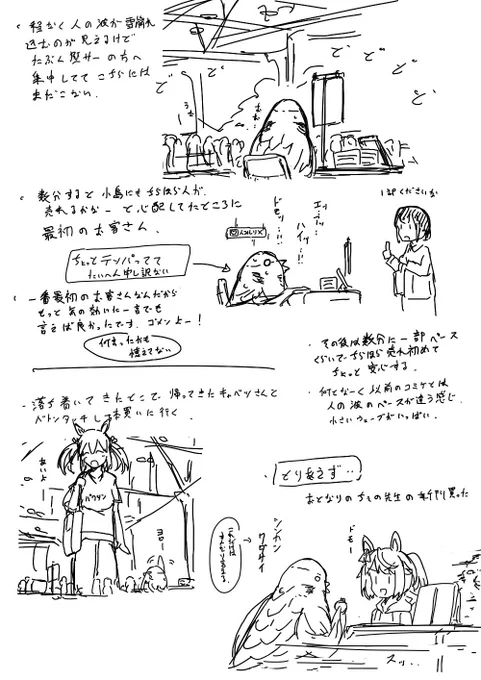 程なく人の波が雪崩れ
込むのが見えるけど
たぶん壁サーの方へ
集中してて こちらには
まだこない.
ど
ど
ど
ど
ど
数分すると小島にもちらほら人が.
売れるかなーと心配してたところに
最初のお客さん.
1部くださいな
エッ…ッ…
ハイッ…!
ドモッ…!!
ちょっとテンパってて
たいへん申し訳ない
一番最初のお客さんなんだから
もっと気の効いた一言でも
言えば良かったです. ゴメンよー!
何言ったかも
憶えてない
その後は数分に一部ペース
くらいでちらほら売れ初めて
ちょっと安心する.
何となーく以前のコミケとは
人の波のペースが違う感じ.
小さいウェーブがいっぱい.
落ち着いてきたとこで、帰ってきたキャベツさんと
バトンタッチし本買いに行く.
あいよ
ヨロー
とりあえず…
おとなりの
先生の
買った
シンカン
クダサイ
ドモー
スッ..